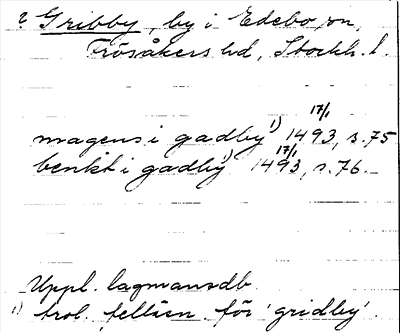 ? Gribby, by i Edebo sn,
Frösåkers hd, Stockh. l.
magens i gadby 1) 17/1 1493, s. 75
benkt i gadby 1) 17/1 1493, s. 76.
Uppl. lagmansdb.
1) trol. felläsn. för 'gridby'.